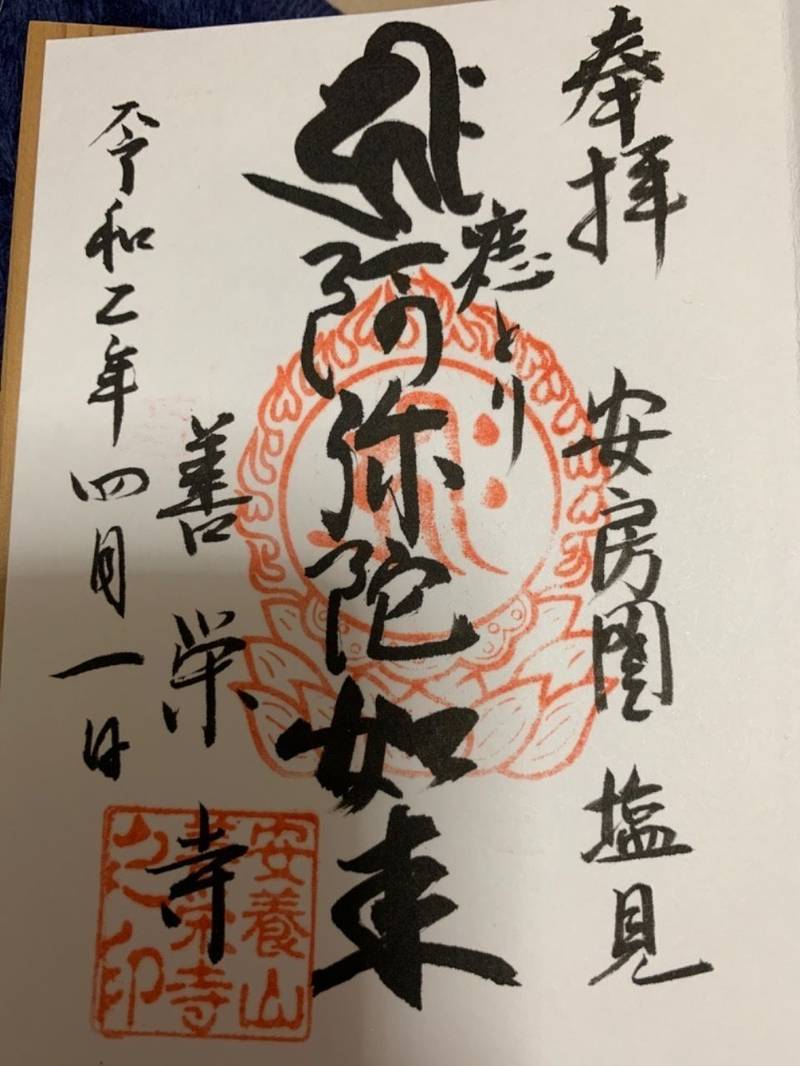 奉拝 安房國 塩見
痣とり
阿弥陀如来
善栄寺
令和二年四月一日
安養山
善栄寺
之印